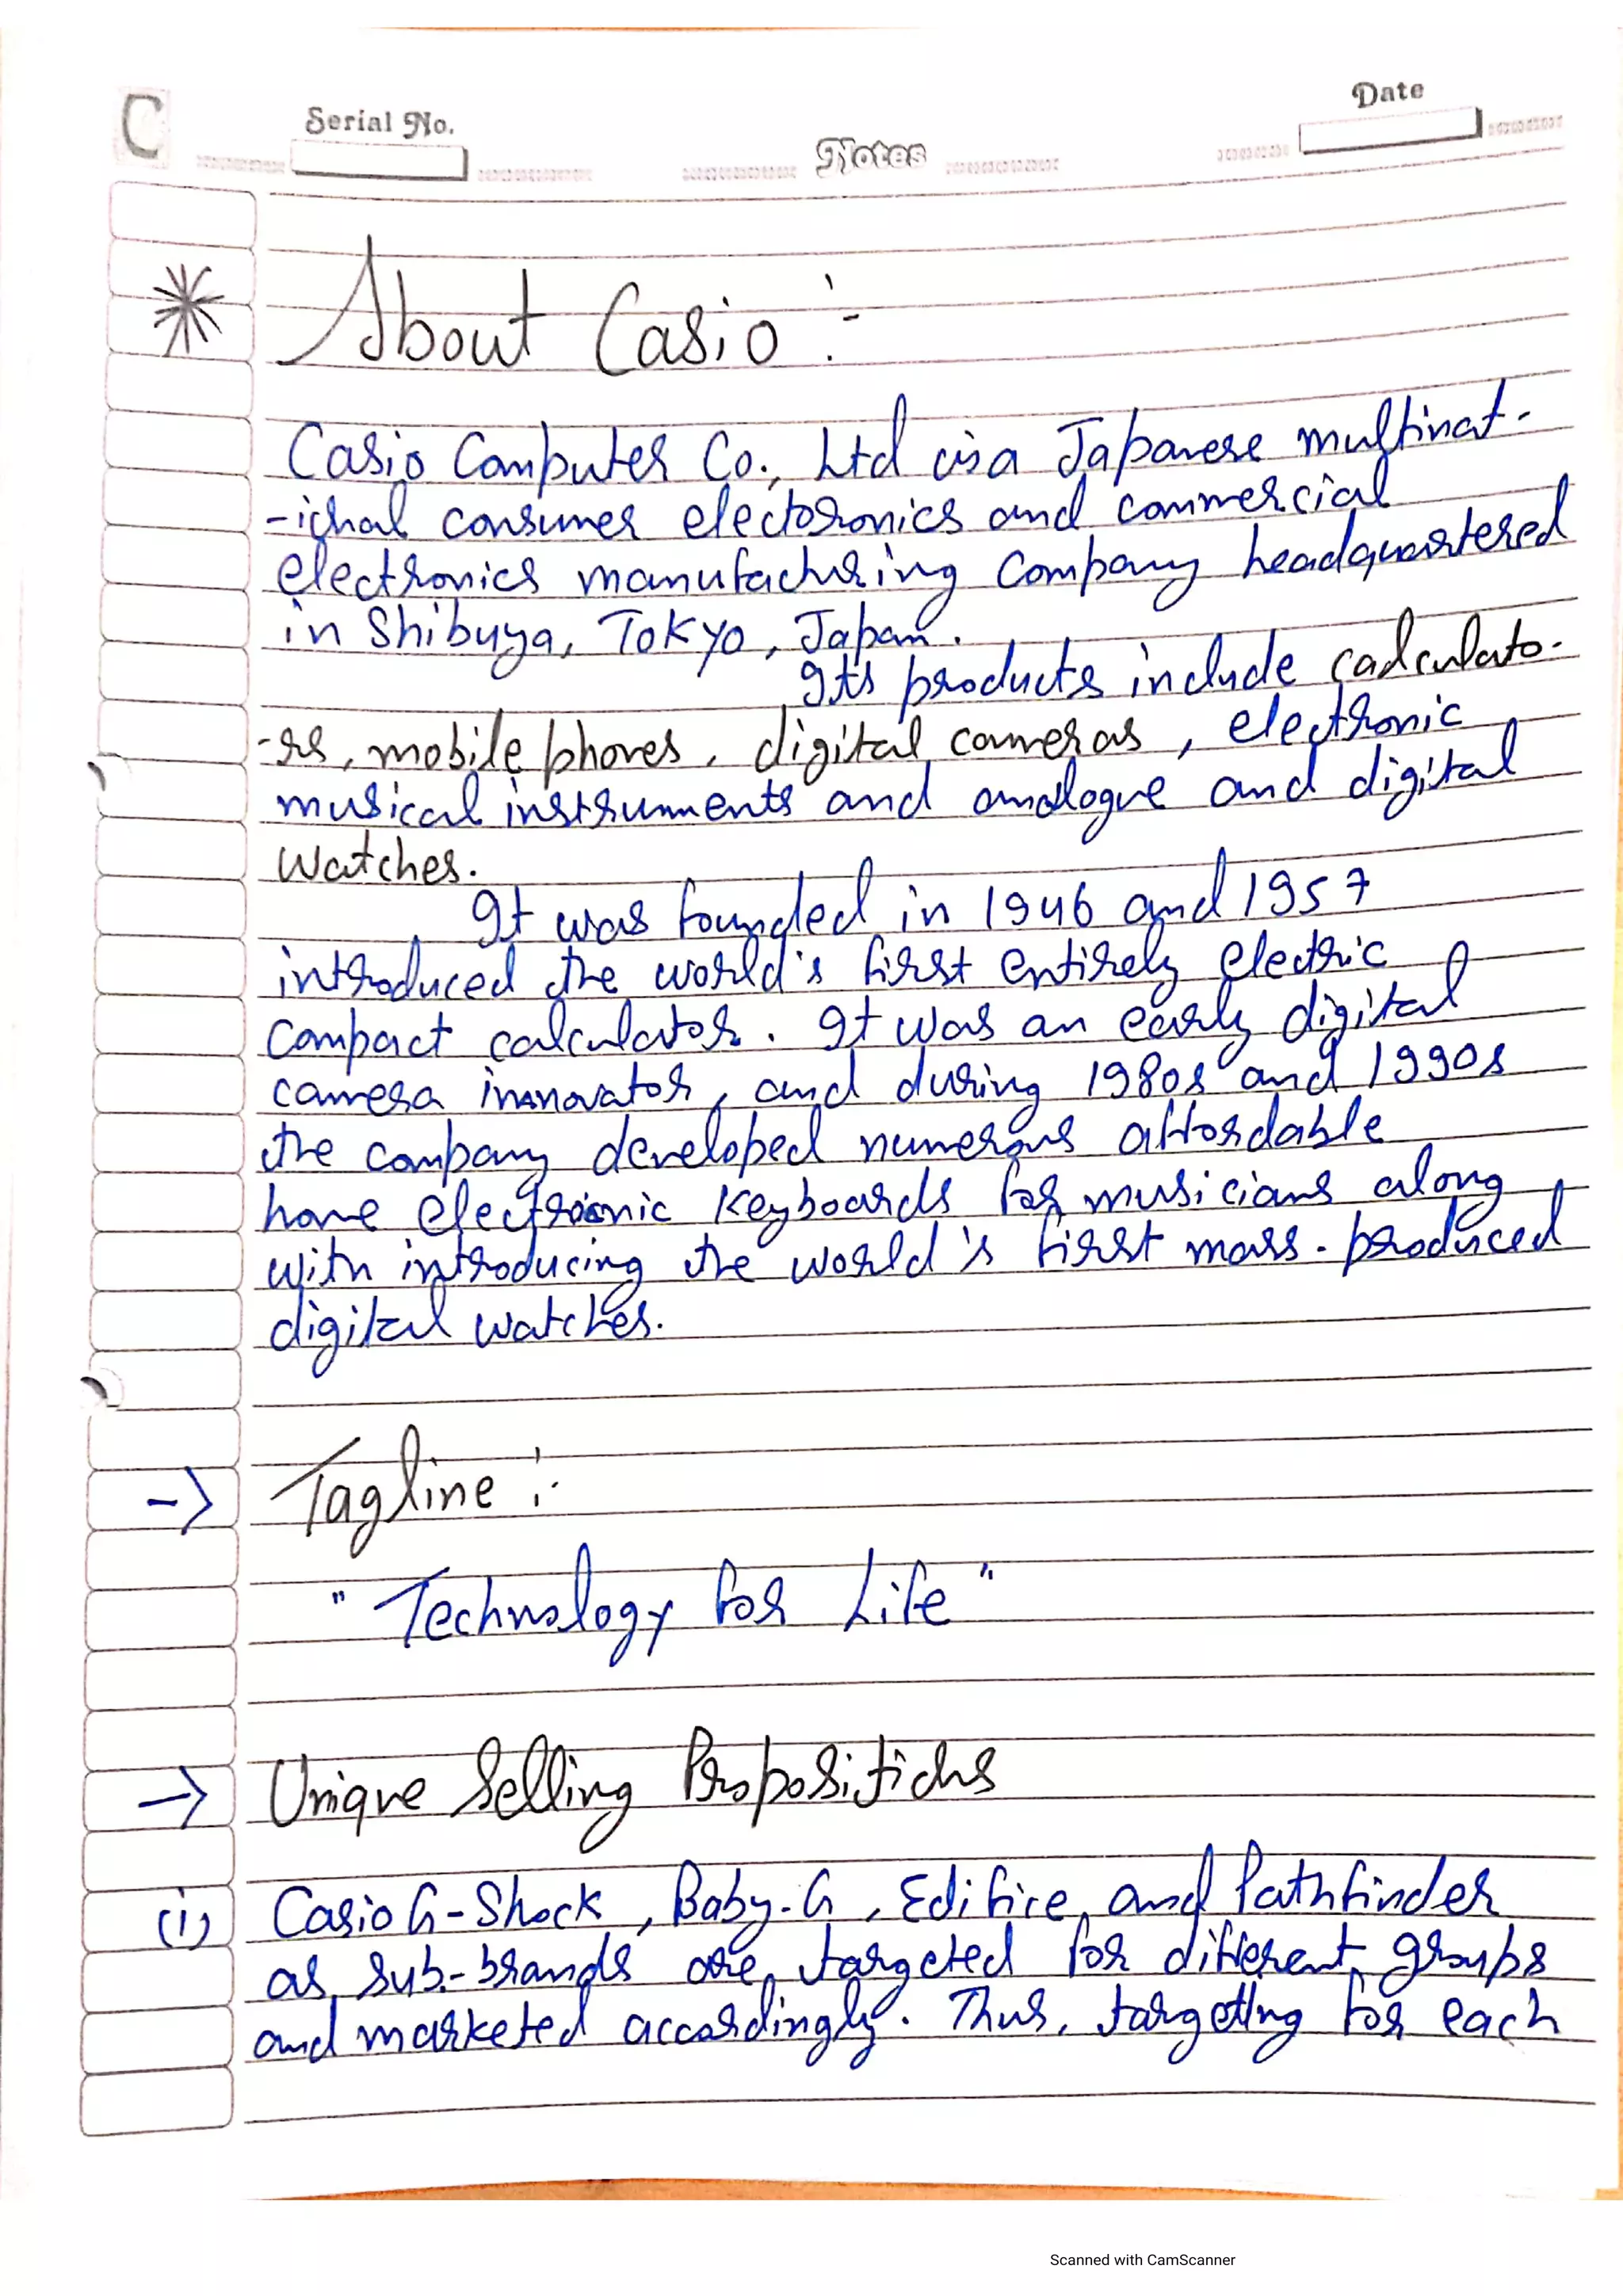 C
Serial No.
Notes
Date
* About Casio :-
Casio Computer Co., Ltd is a Japanese multinat-
-ional consumer electronics and commercial
electronics manufacturing company headquartered
in Shibuya, Tokyo, Japan.
Its products include calculato-
-rs, mobile phones, digital cameras, electronic
musical instruments and analogue and digital
watches.
It was founded in 1946 and 1957
introduced the world's first entirely electric
compact calculator. It was an early digital
camera innovator, and during 1980s and 1990s
the company developed numerous affordable
home electronic keyboards for musicians along
with introducing the world's first mass-produced
digital watches.
-> Tagline :-
"Technology for Life"
-> Unique Selling Propositions
(i) Casio G-Shock, Baby-G, Edifice, and Pathfinder
as sub-brands are targeted for different groups
and marketed accordingly. Thus, targeting for each
Scanned with CamScanner